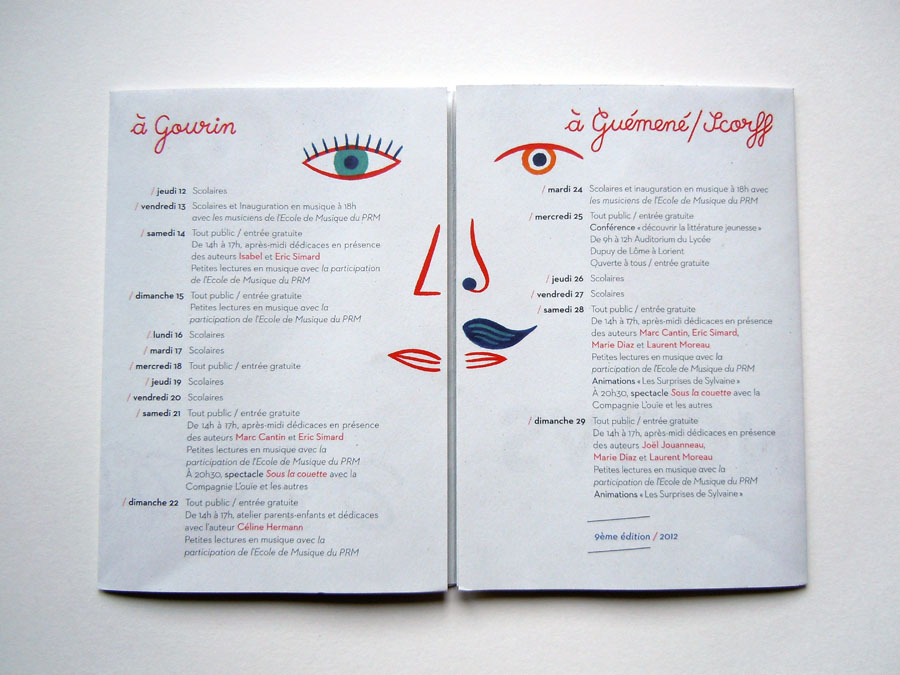 à Gourin
/ jeudi 12 Scolaires
/ vendredi 13 Scolaires et Inauguration en musique à 18h
avec les musiciens de l'Ecole de Musique du PRM
/ samedi 14 Tout public / entrée gratuite
De 14h à 17h, après-midi dédicaces en présence
des auteurs Isabel et Eric Simard
Petites lectures en musique avec la participation
de l'Ecole de Musique du PRM
/ dimanche 15 Tout public / entrée gratuite
Petites lectures en musique avec la
participation de l'Ecole de Musique du PRM
/ lundi 16 Scolaires
/ mardi 17 Scolaires
/ mercredi 18 Tout public / entrée gratuite
/ jeudi 19 Scolaires
/ vendredi 20 Scolaires
/ samedi 21 Tout public / entrée gratuite
De 14h à 17h, après-midi dédicaces en présence
des auteurs Marc Cantin et Eric Simard
Petites lectures en musique avec la
participation de l'Ecole de Musique du PRM
À 20h30, spectacle Sous la couette avec la
Compagnie L'ouïe et les autres
/ dimanche 22 Tout public / entrée gratuite
De 14h à 17h, atelier parents-enfants et dédicaces
avec l'auteur Céline Hermann
Petites lectures en musique avec la
participation de l'Ecole de Musique du PRM
à Guémené/Scorff
/ mardi 24 Scolaires et Inauguration en musique à 18h avec
les musiciens de l'Ecole de Musique du PRM
/ mercredi 25 Tout public / entrée gratuite
Conférence « découvrir la littérature jeunesse »
De 9h à 12h Auditorium du Lycée
Dupuy de Lôme à Lorient
Ouverte à tous / entrée gratuite
/ jeudi 26 Scolaires
/ vendredi 27 Scolaires
/ samedi 28 Tout public / entrée gratuite
De 14h à 17h, après-midi dédicaces en présence
des auteurs Marc Cantin, Eric Simard,
Marie Diaz et Laurent Moreau
Petites lectures en musique avec la
participation de l'Ecole de Musique du PRM
Animations « Les Surprises de Sylvaine »
À 20h30, spectacle Sous la couette avec la
Compagnie L'ouïe et les autres
/ dimanche 29 Tout public / entrée gratuite
De 14h à 17h, après-midi dédicaces en présence
des auteurs Joël Jouanneau,
Marie Diaz et Laurent Moreau
Petites lectures en musique avec la
participation de l'Ecole de Musique du PRM
Animations « Les Surprises de Sylvaine »
9ème édition / 2012